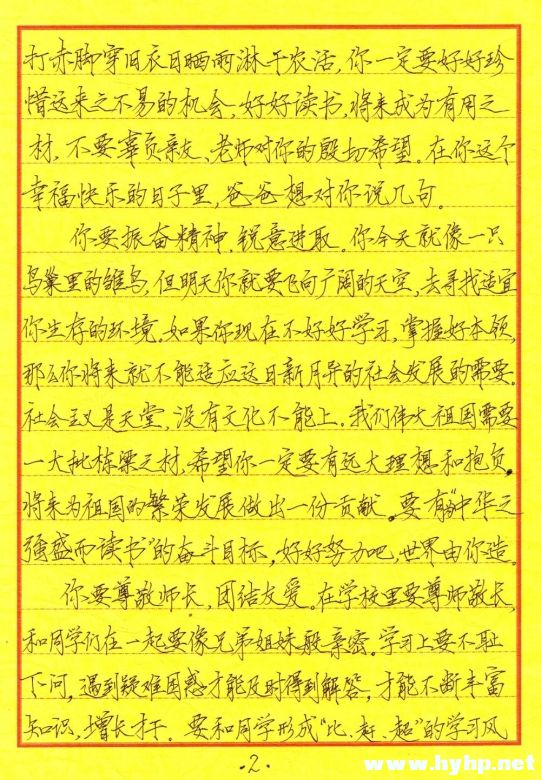 打赤脚穿旧衣日晒雨淋干农活，你一定要好好珍
惜这来之不易的机会，好好读书，将来成为有用之
材，不要辜负亲友、老师对你的殷切希望。在你这个
幸福快乐的日子里，爸爸想对你说几句。
你要振奋精神，锐意进取。你今天就像一只
鸟巢里的雏鸟，但明天你就要飞向广阔的天空，去寻找适宜
你生存的环境。如果你现在不好好学习，掌握好本领，
那么你将来就不能适应这日新月异的社会发展的需要。
社会主义是天堂，没有文化不能上。我们伟大祖国需要
一大批栋梁之材，希望你一定要有远大理想和抱负，
将来为祖国的繁荣发展做出一份贡献。要有“为中华之
强盛而读书”的奋斗目标，好好努力吧，世界由你造。
你要尊敬师长，团结友爱。在学校里要尊师敬长，
和同学们在一起要像兄弟姐妹般亲密。学习上要不耻
下问，遇到疑难困惑才能及时得到解答，才能不断丰富
知识，增长才干。要和同学形成“比、赶、超”的学习风
·2·
www.hyhp.net